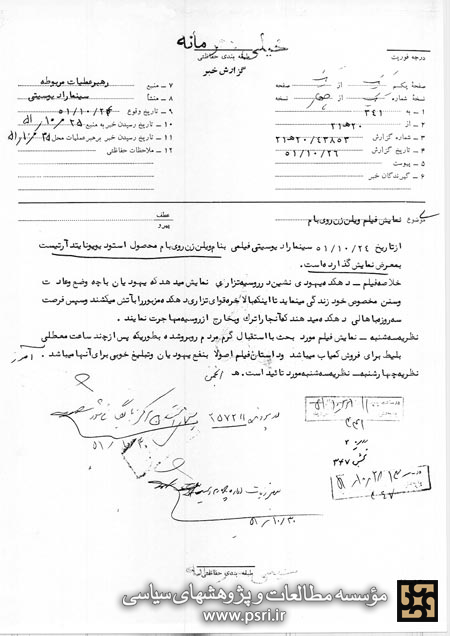 خیلی محرمانه
طبقه بندی حفاظتی
درجه فوریت
گزارش خبر
صفحه یکم از صفحه
نسخه شماره از چهار نسخه
۱ - به ۳۴۱
۲ - از ۲۰ ه‍ ۲۱
۳ - شماره گزارش ۲۰/۴۳۸۵۳ ه‍ ۲۱
۴ - تاریخ گزارش ۵۱/۱۰/۲۶
۵ - پیوست
۶ - گیرندگان خبر
۷ - منبع رهبر عملیات مربوطه
۸ - منشأ سینما رادیوسیتی
۹ - تاریخ وقوع ۵۱/۱۰/۲۴
۱۰ - تاریخ رسیدن خبر به منبع ۵۱/۱۰/۲۵
۱۱ - تاریخ رسیدن خبر برهبر عملیات محل ۵۱/۱۰/۲۵
۱۲ - ملاحظات حفاظتی
موضوع نمایش فیلم ویلن زن روی بام
عطف
پیرو
از تاریخ ۵۱/۱۰/۲۴ سینما رادیوسیتی فیلمی بنام ویلن زن روی بام محصول استودیو یونایتد آرتیست
بمعرض نمایش گذارده است.
خلاصه فیلم - دهکده یهودی نشین در روسیه تزاری نمایش میدهد که یهودیان با چه وضع وعادت
وسنن مخصوص خود زندگی مینماید تا اینکه بالاخره قوای تزاری دهکده مزبور را بآتش میکشند وسپس فرصت
سه روزه باهالی دهکده میدهند که آنجا را ترک و بخارج از روسیه مهاجرت نمایند.
نظریه سه شنبه - نمایش فیلم مورد بحث با استقبال گرم مردم روبرو شده بطوریکه پس از چند ساعت معطلی
بلیط برای فروش کمیاب میباشد وداستان فیلم اصولاً بنفع یهودیان وتبلیغ خوبی برای آنها میباشد.
نظریه چهارشنبه - نظریه سه شنبه مورد تائید است. ه‍
در پرونده ۲۵۷۲۱۱
۵۱/۱۰/۳۰
۳۴۱
۳۴۷
۵۱/۱۰/۲۸
۵۱/۱۰/۳۰
طبقه بندی حفاظتی
مؤسسه مطالعات و پژوهشهای سیاسی
www.psri.ir